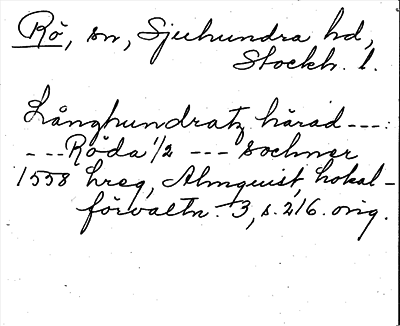 Rö, sn, Sjuhundra hd,
Stockh. l.
Långhundratz härad ---:
--- Röda 1/2 --- sochner
1558 hreg, Almquist, Lokal-
förvaltn. 3, s. 216. orig.